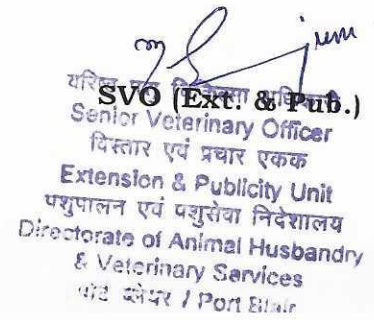 वरिष्ठ पशु चिकित्सा अधिकारी
SVO (Ext. & Pub.)
Senior Veterinary Officer
विस्तार एवं प्रचार एकक
Extension & Publicity Unit
पशुपालन एवं पशुसेवा निदेशालय
Directorate of Animal Husbandry
& Veterinary Services
पोर्ट ब्लेयर / Port Blair